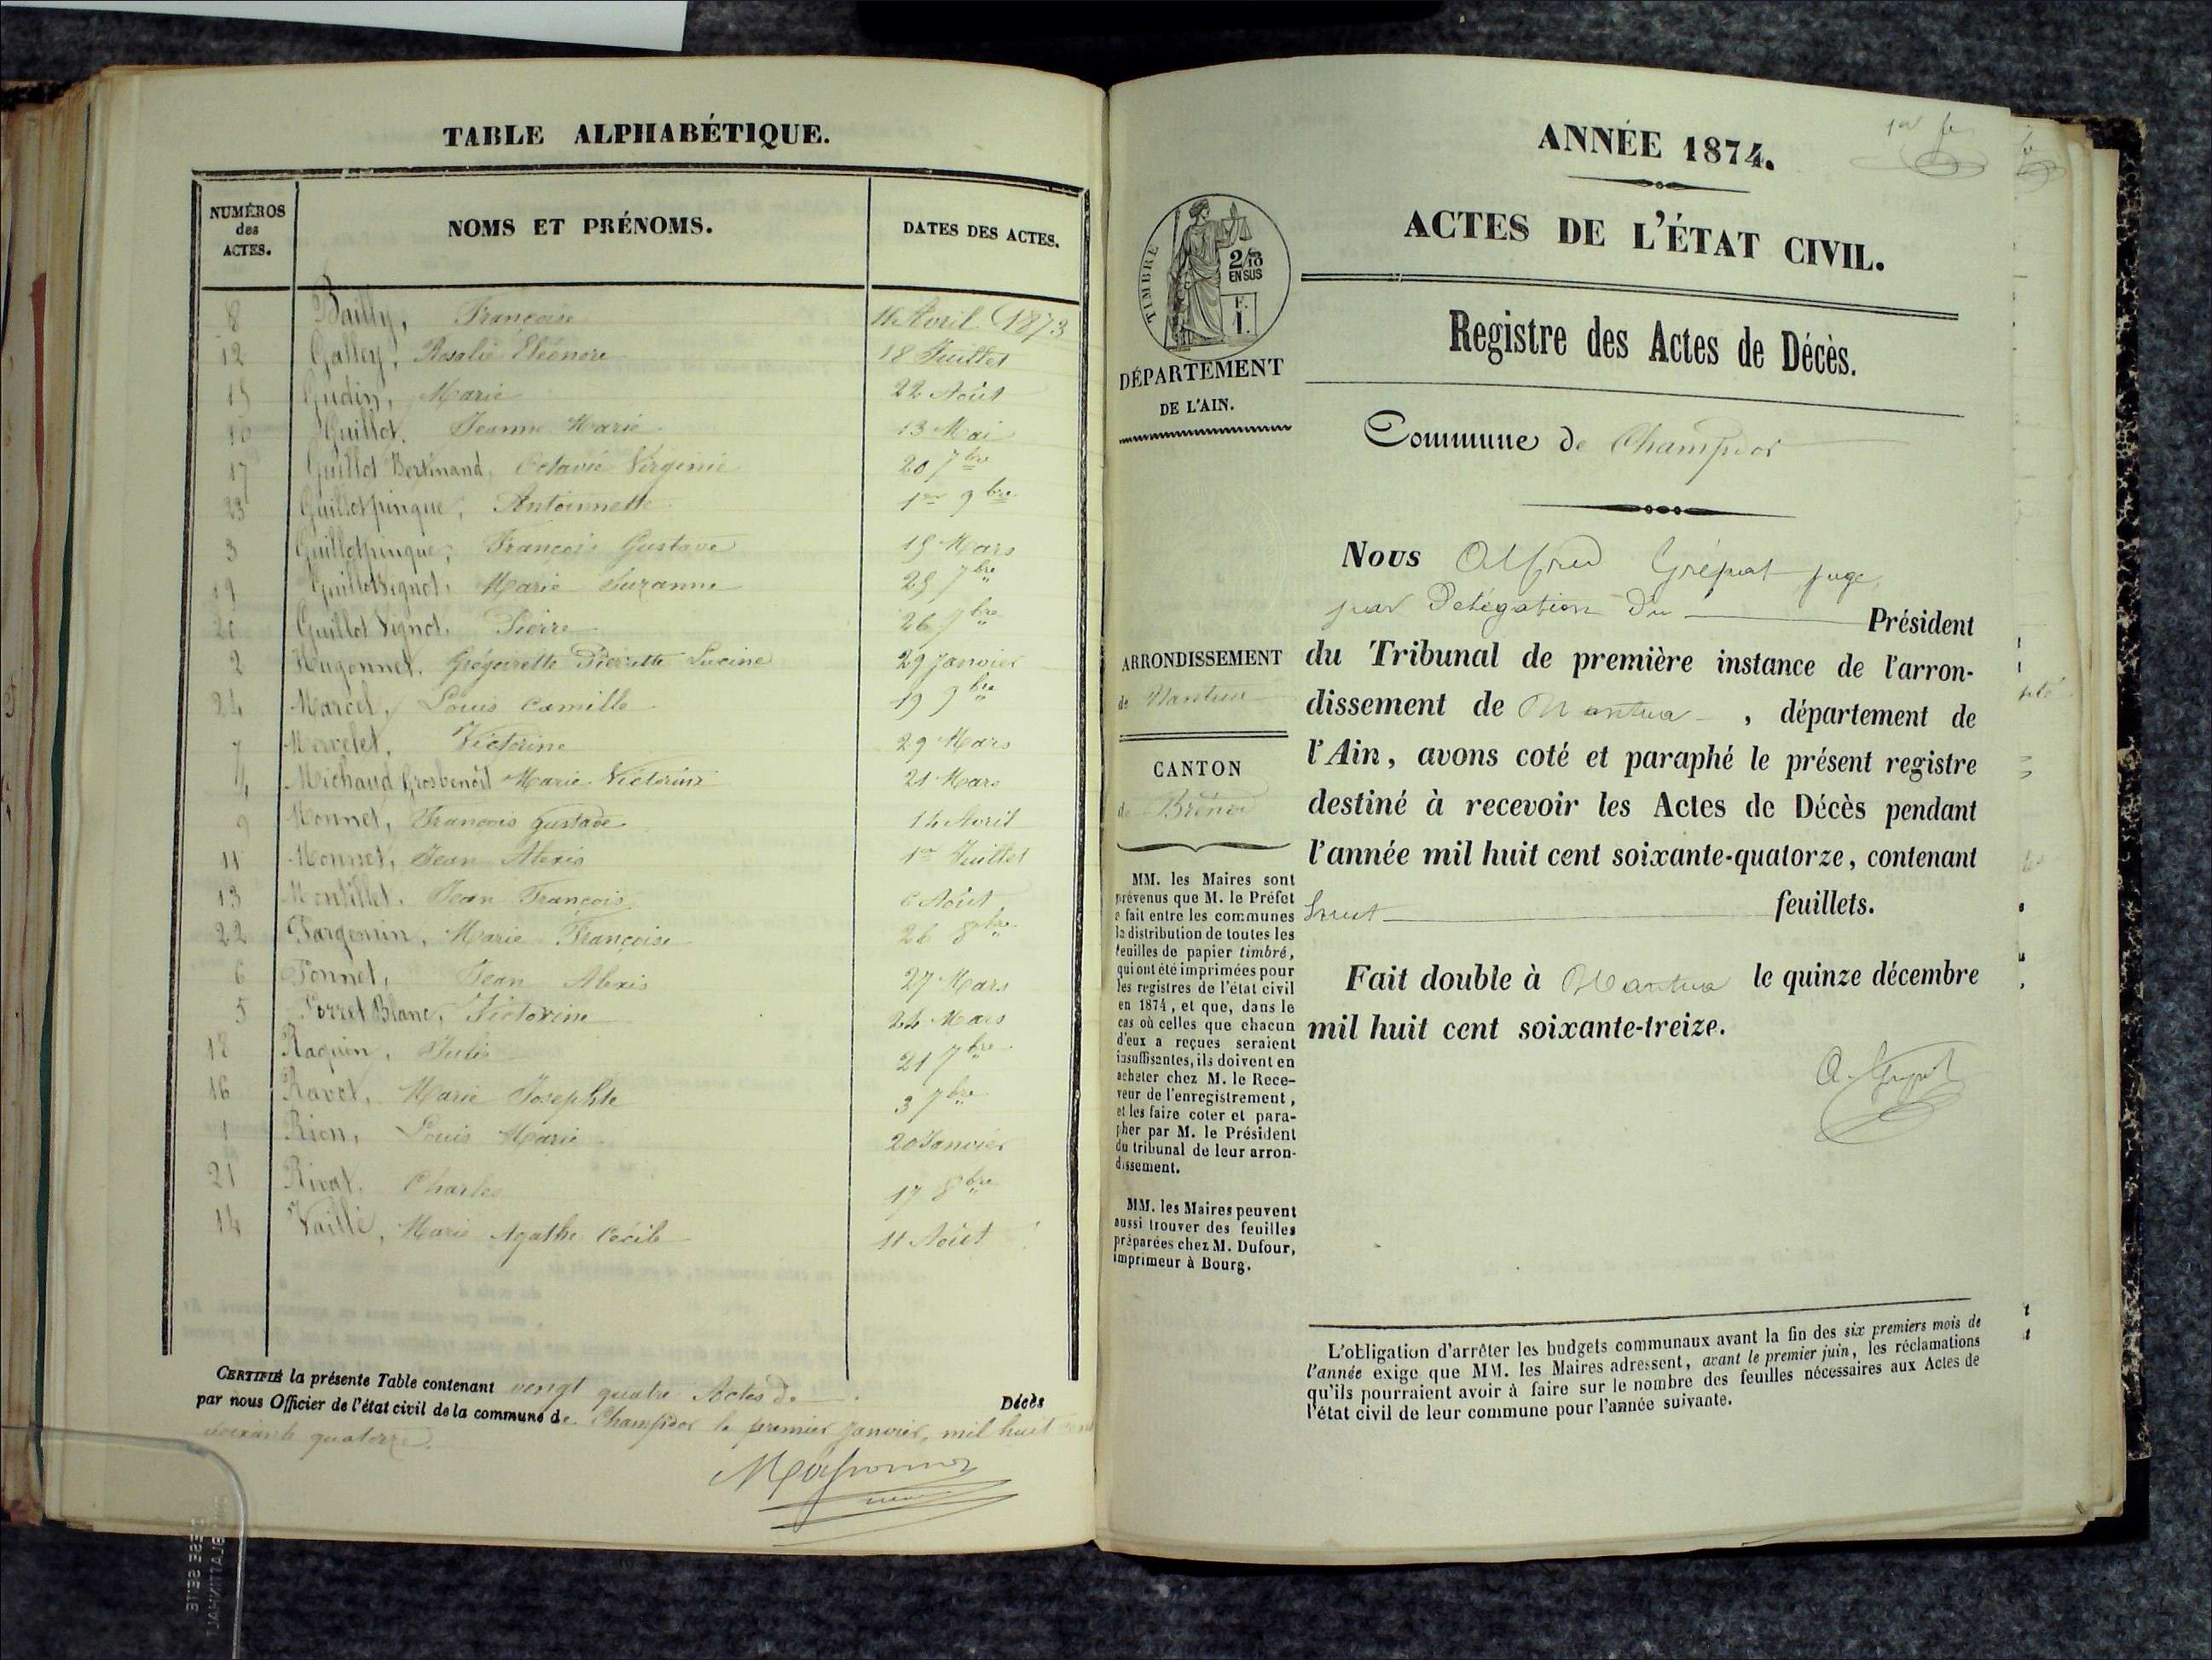 TABLE ALPHABÉTIQUE.
NUMÉROS des ACTES. NOMS ET PRÉNOMS. DATES DES ACTES.
8 Bailly, Françoise Avril 1873
12 Galley, Rosalie Eléonore 18 Juillet
15 Gudin, Marie 22 Août
10 Guillot, Jeanne Marie 13 Mai
17 Guillot Bertinand, Octavie Virginie 20 7bre
23 Guillotpinque, Antoinnette 1er 9bre
3 Guillotpinque, François Gustave 15 Mars
19 Guillot Vignot, Marie Suzanne 25 7bre
20 Guillot Vignot, Pierre 26 7bre
2 Hugonnet, Grégoirette Pierrette Lucine 29 Janvier
24 Marcel, Louis Camille 19 9bre
7 Mervelet, Victorine 29 Mars
4 Michaud Grosbenoît Marie Victorine 21 Mars
9 Monnet, François Gustave 14 Avril
11 Monnet, Jean Alexis 1er Juillet
13 Montillet, Jean François 6 Août
22 Pargemin, Marie Françoise 26 8bre
6 Ponnet, Jean Alexis 27 Mars
5 Porret Blanc, Victorine 24 Mars
18 Raquin, Julie 21 7bre
16 Ravet, Marie Josephte 3 7bre
1 Rion, Louis Marie 20 Janvier
21 Rivat, Charles 17 8bre
14 Vaillé, Marie Agathe Cécile 11 Août
CERTIFIÉ la présente Table contenant vengt quatre Actes de Décès
par nous Officier de l'état civil de la commune de Champdor le premier Janvier, mil huit cent
soixante quatorze.
ANNÉE 1874.
1er f
ACTES DE L'ÉTAT CIVIL.
TIMBRE
2/10
EN SUS
F.
1.
DÉPARTEMENT
DE L'AIN.
Registre des Actes de Décès.
Commune de Champdor
Nous Alfred Grépat juge
par Délégation du Président
du Tribunal de première instance de l'arron-
dissement de Nantua, département de
l'Ain, avons coté et paraphé le présent registre
destiné à recevoir les Actes de Décès pendant
l'année mil huit cent soixante-quatorze, contenant
huit feuillets.
Fait double à Nantua le quinze décembre
mil huit cent soixante-treize.
ARRONDISSEMENT
de Nantua
CANTON
de Brénod
MM. les Maires sont
prévenus que M. le Préfet
a fait entre les communes
la distribution de toutes les
feuilles de papier timbré,
qui ont été imprimées pour
les registres de l'état civil
en 1874, et que, dans le
cas où celles que chacun
d'eux a reçues seraient
insuffisantes, ils doivent en
acheter chez M. le Rece-
veur de l'enregistrement,
et les faire coter et para-
pher par M. le Président
du tribunal de leur arron-
dissement.
MM. les Maires peuvent
aussi trouver des feuilles
préparées chez M. Dufour,
imprimeur à Bourg.
L'obligation d'arrêter les budgets communaux avant la fin des six premiers mois de
l'année exige que MM. les Maires adressent, avant le premier juin, les réclamations
qu'ils pourraient avoir à faire sur le nombre des feuilles nécessaires aux Actes de
l'état civil de leur commune pour l'année suivante.